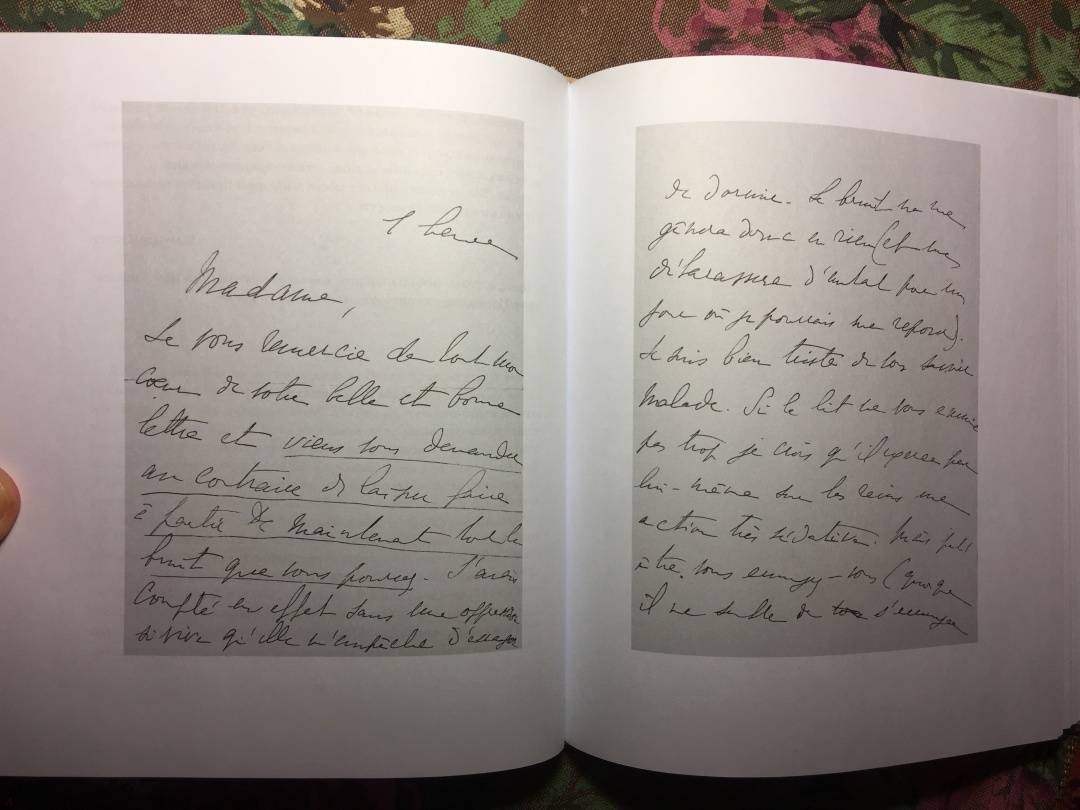 1 heure
Madame,
Je vous remercie de tout mon
cœur de votre belle et bonne
lettre et viens vous demander
au contraire de laisser faire
à partir de maintenant tout le
bruit que vous pourrez. J'avais
compté en effet sans une oppression
si vive qu'elle m'empêche d'essayer
de dormir. Le bruit ne me
gênera donc en rien (et me
d'autant pour un
jour où je pourrais me reposer).
Je suis bien triste de vous savoir
malade. Si le lit ne vous ennuie
pas trop je crois qu'il exerce par
lui-même sur les reins une
action très sédative. Mais peut
être vous ennuyez-vous (quoique
il me semble de s'ennuyer